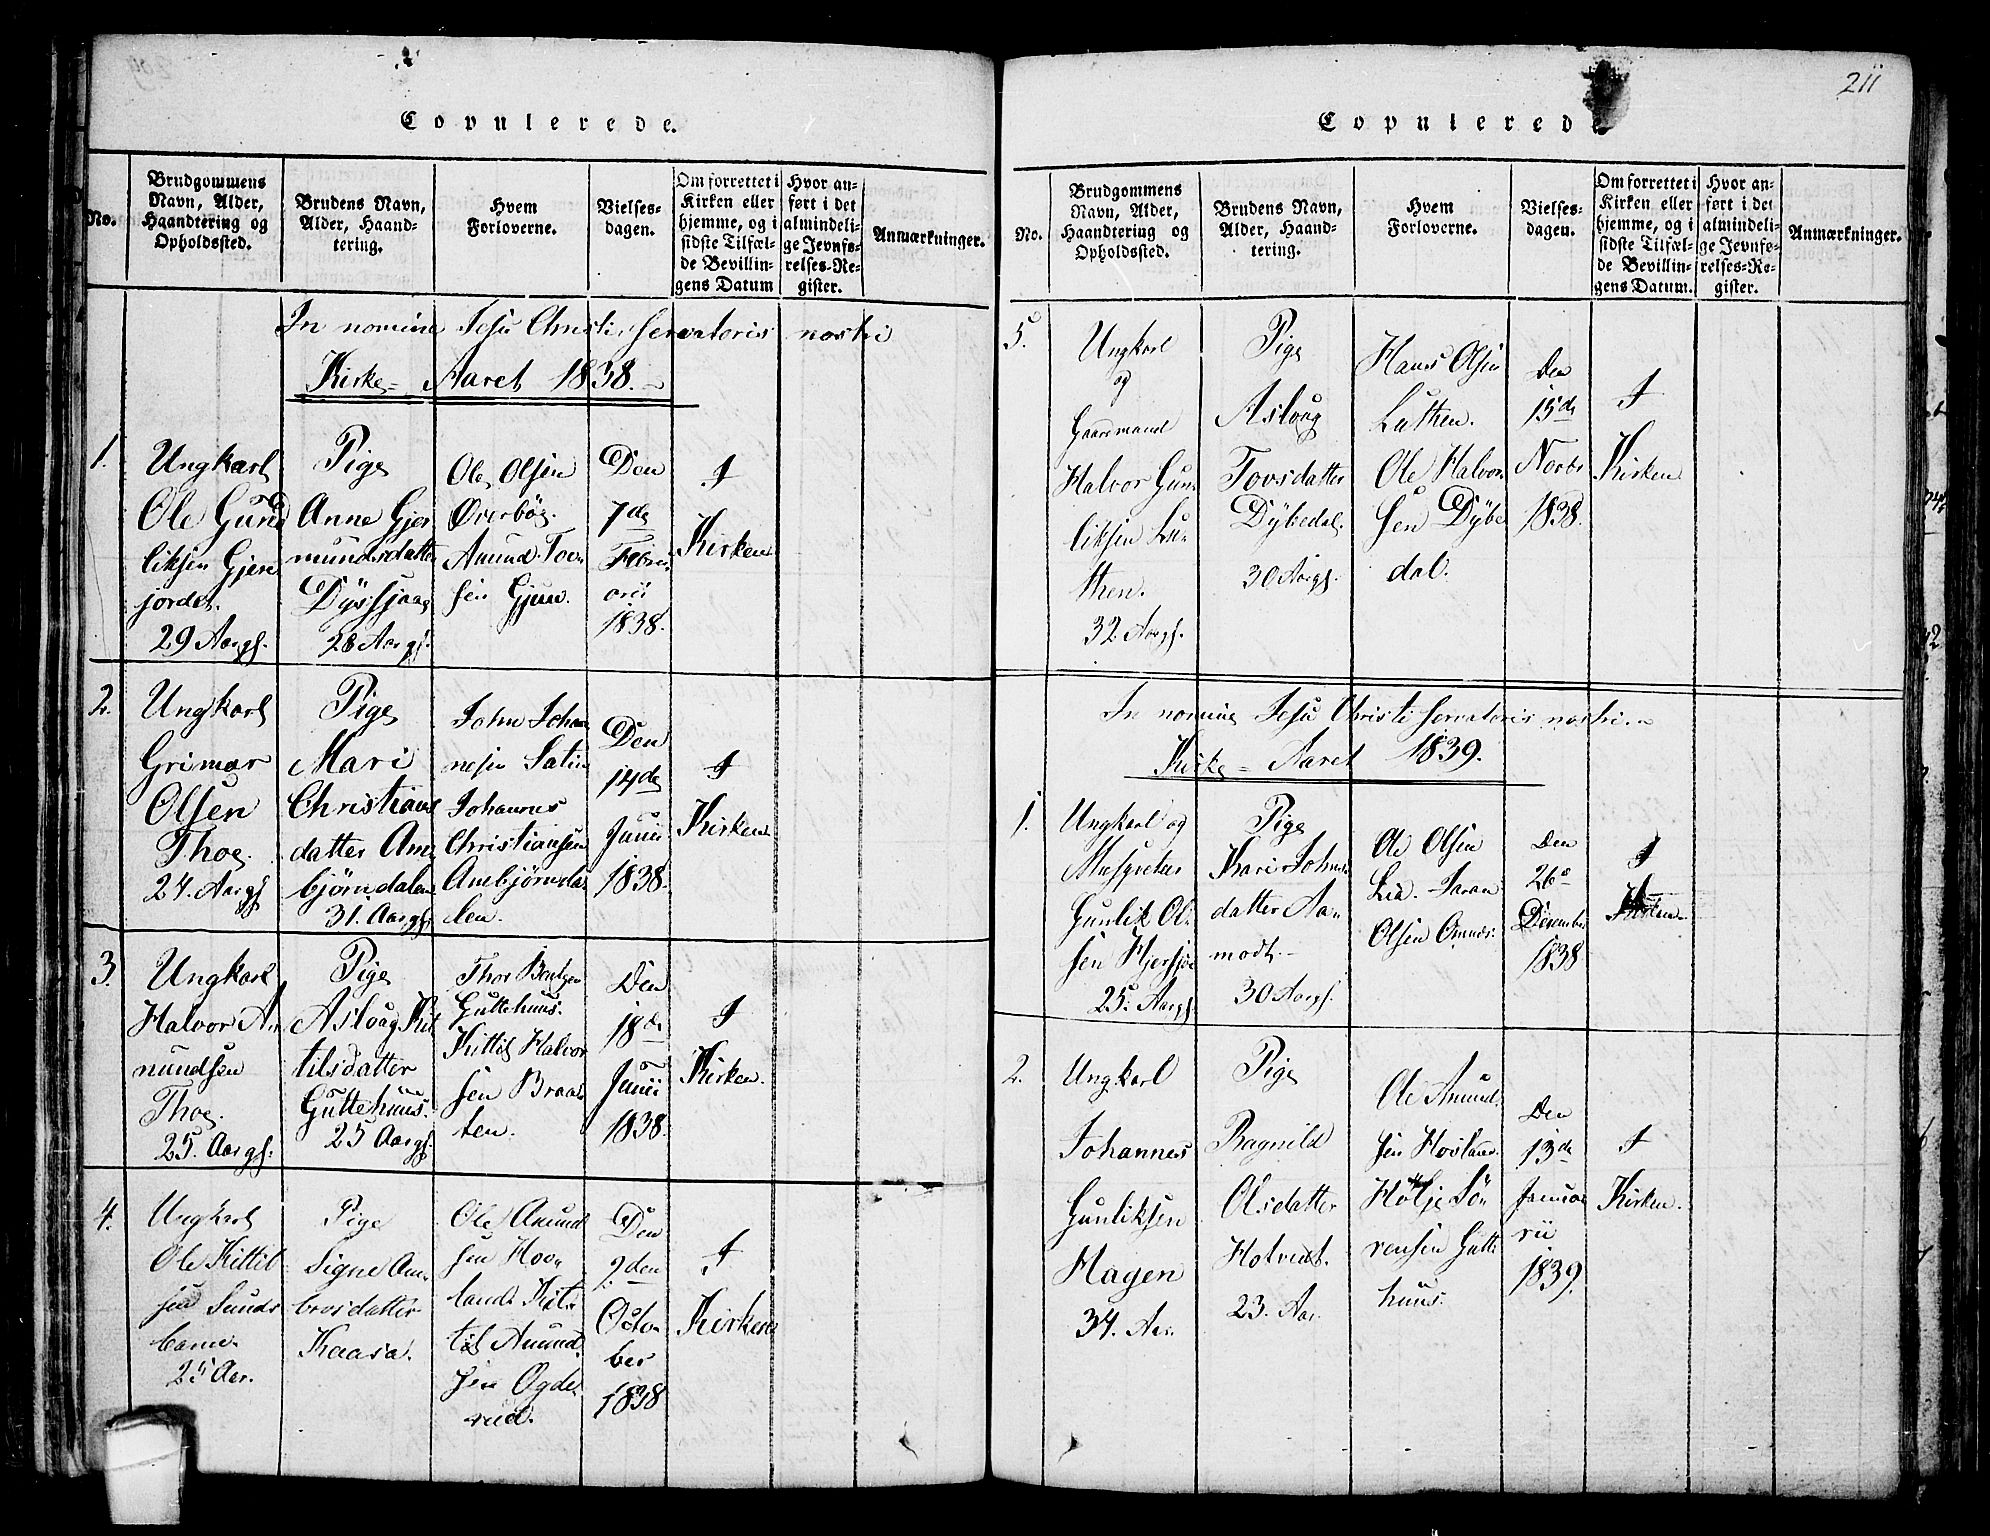 Copulerede.
No.
Brudgommens
Navn, Alder,
Haandtering og
Opholdssted.
Brudens Navn,
Alder, Haand-
tering.
Hvem
Forloverne.
Vielses-
dagen.
Om forrettet i
Kirken eller
hjemme, og i
sidste Tilfæl-
de Bevillin-
gens Datum
Hvor an-
ført i det
almindeli-
ge Jevnfø-
relses-Re-
gister.
Anmærkninger.
In nomine Jesu Christi servatoris nostri
Kirke- Aaret 1838.
1.
Ungkarl
Ole Gund
liksen Gjere
jordet.
29 Aargs.
Pige
Anne Gjer
mundsdatter
Dyssjaag
28 Aargs.
Ole Olsen
Øverbøe.
Amund Tov
sen Gjuv.
Den
7de
Febru
arii
1838.
I
Kirken
2.
Ungkarl
Grimar
Olsen
Thoe.
24. Aargs
Pige
Mari
Christians
datter Am
bjørndalen
31. Aargs.
John Johan
nesen
Johannes
Christiansen
Ambjørnda
len.
Den
14de
Junii
1838.
I
Kirken
3.
Ungkarl
Halvor A
mundsen
Thoe.
25. Aargs.
Pige
Aslaug Kit
tilsdatter
Guttehuus.
25 Aargs.
Thor Bentsen
Guttehuus.
Kittil Halvor
sen Braa
ten.
Den
18de
Junii
1838.
I
Kirken.
4.
Ungkarl
Ole Kittil
sen Sunds
barm.
25 Aar.
Pige
Signe Am
brosdatter
Kaasa.
Ole Amund
sen Hov
land. Kit
til Amund
sen Ogde
rud.
Den
9den
Octo
ber
1838
I
Kirken
211
Copulerede
No.
Brudgommens
Navn, Alder,
Haandtering og
Opholdssted.
Brudens Navn,
Alder, Haand-
tering.
Hvem
Forloverne.
Vielses-
dagen.
Om forrettet i
Kirken eller
hjemme, og i
sidste Tilfæl-
de Bevillin-
gens Datum.
Hvor an-
ført i det
almindeli-
ge Jevnfø-
relses-Re-
gister.
Anmærkninger.
5.
Ungkarl
og
Gaardmand
Halvor Gun
liksen Lu-
then.
32. Aargs.
Pige
Aslaug
Tovsdatter
Dybedal.
30 Aargs.
Hans Olsen
Luthen.
Ole Halvor
sen Dybe
dal.
Den
15de
Novbr
1838.
I
Kirken
In nomine Jesu Christi servatoris nostri.
Kirke- Aaret 1839.
1.
Ungkarl og
Musqueter
Gunlik Ol
sen Hjersjøe
25. Aargs.
Pige
Kari Johns
datter Aa-
modt.
30 Aargs.
Ole Olsen
Lia.
Olsen
Den
26e
December
1838
I
Kirken
2.
Ungkarl
Johannes
Gunliksen
Hagen
34. Aar.
Pige
Ragnild
Olsdatter
Hotvedt.
23. Aar.
Ole Amund
sen Hovland.
Holje Sø
rensen Gutte
huus.
Den
13de
Janua
rii
1839.
I
Kirken.